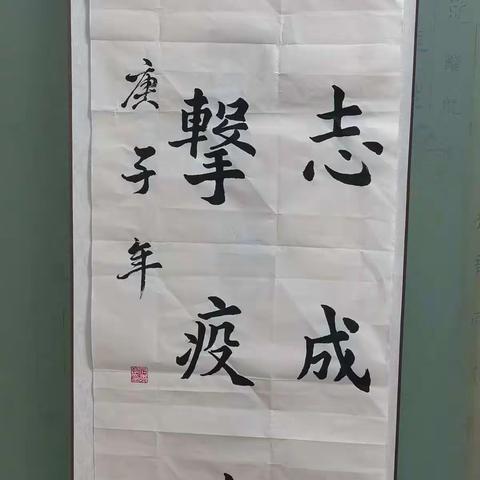 志成
擊疫
庚子年